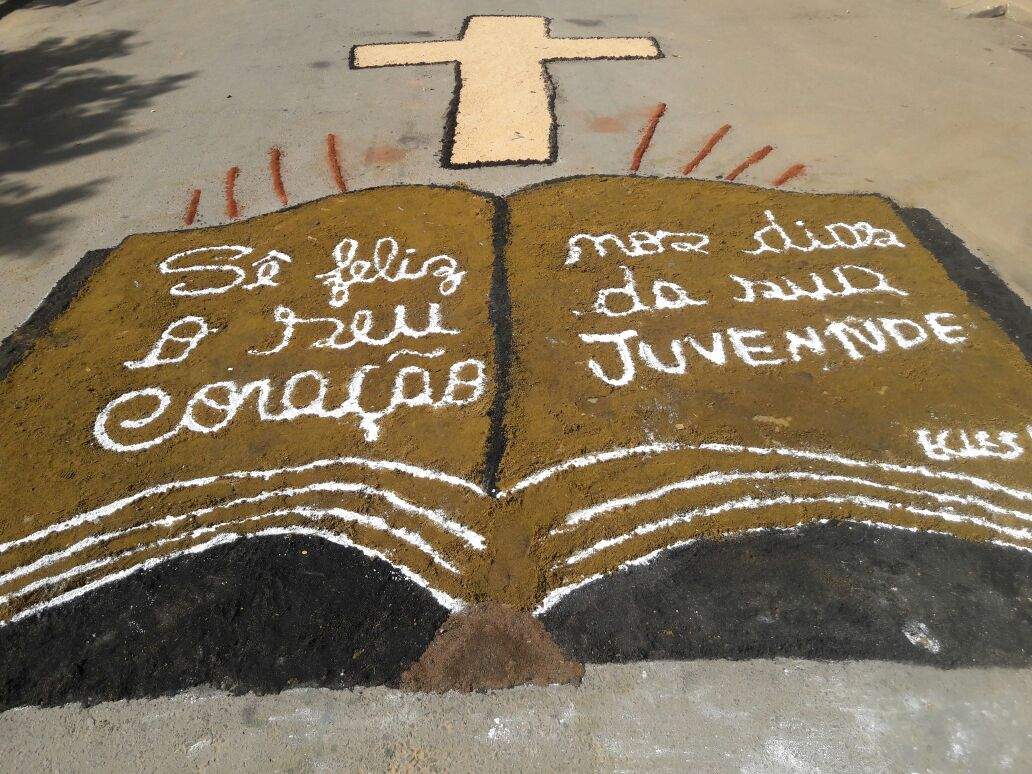 Sê feliz
o seu
coração
nos dias
da sua
JUVENTUDE